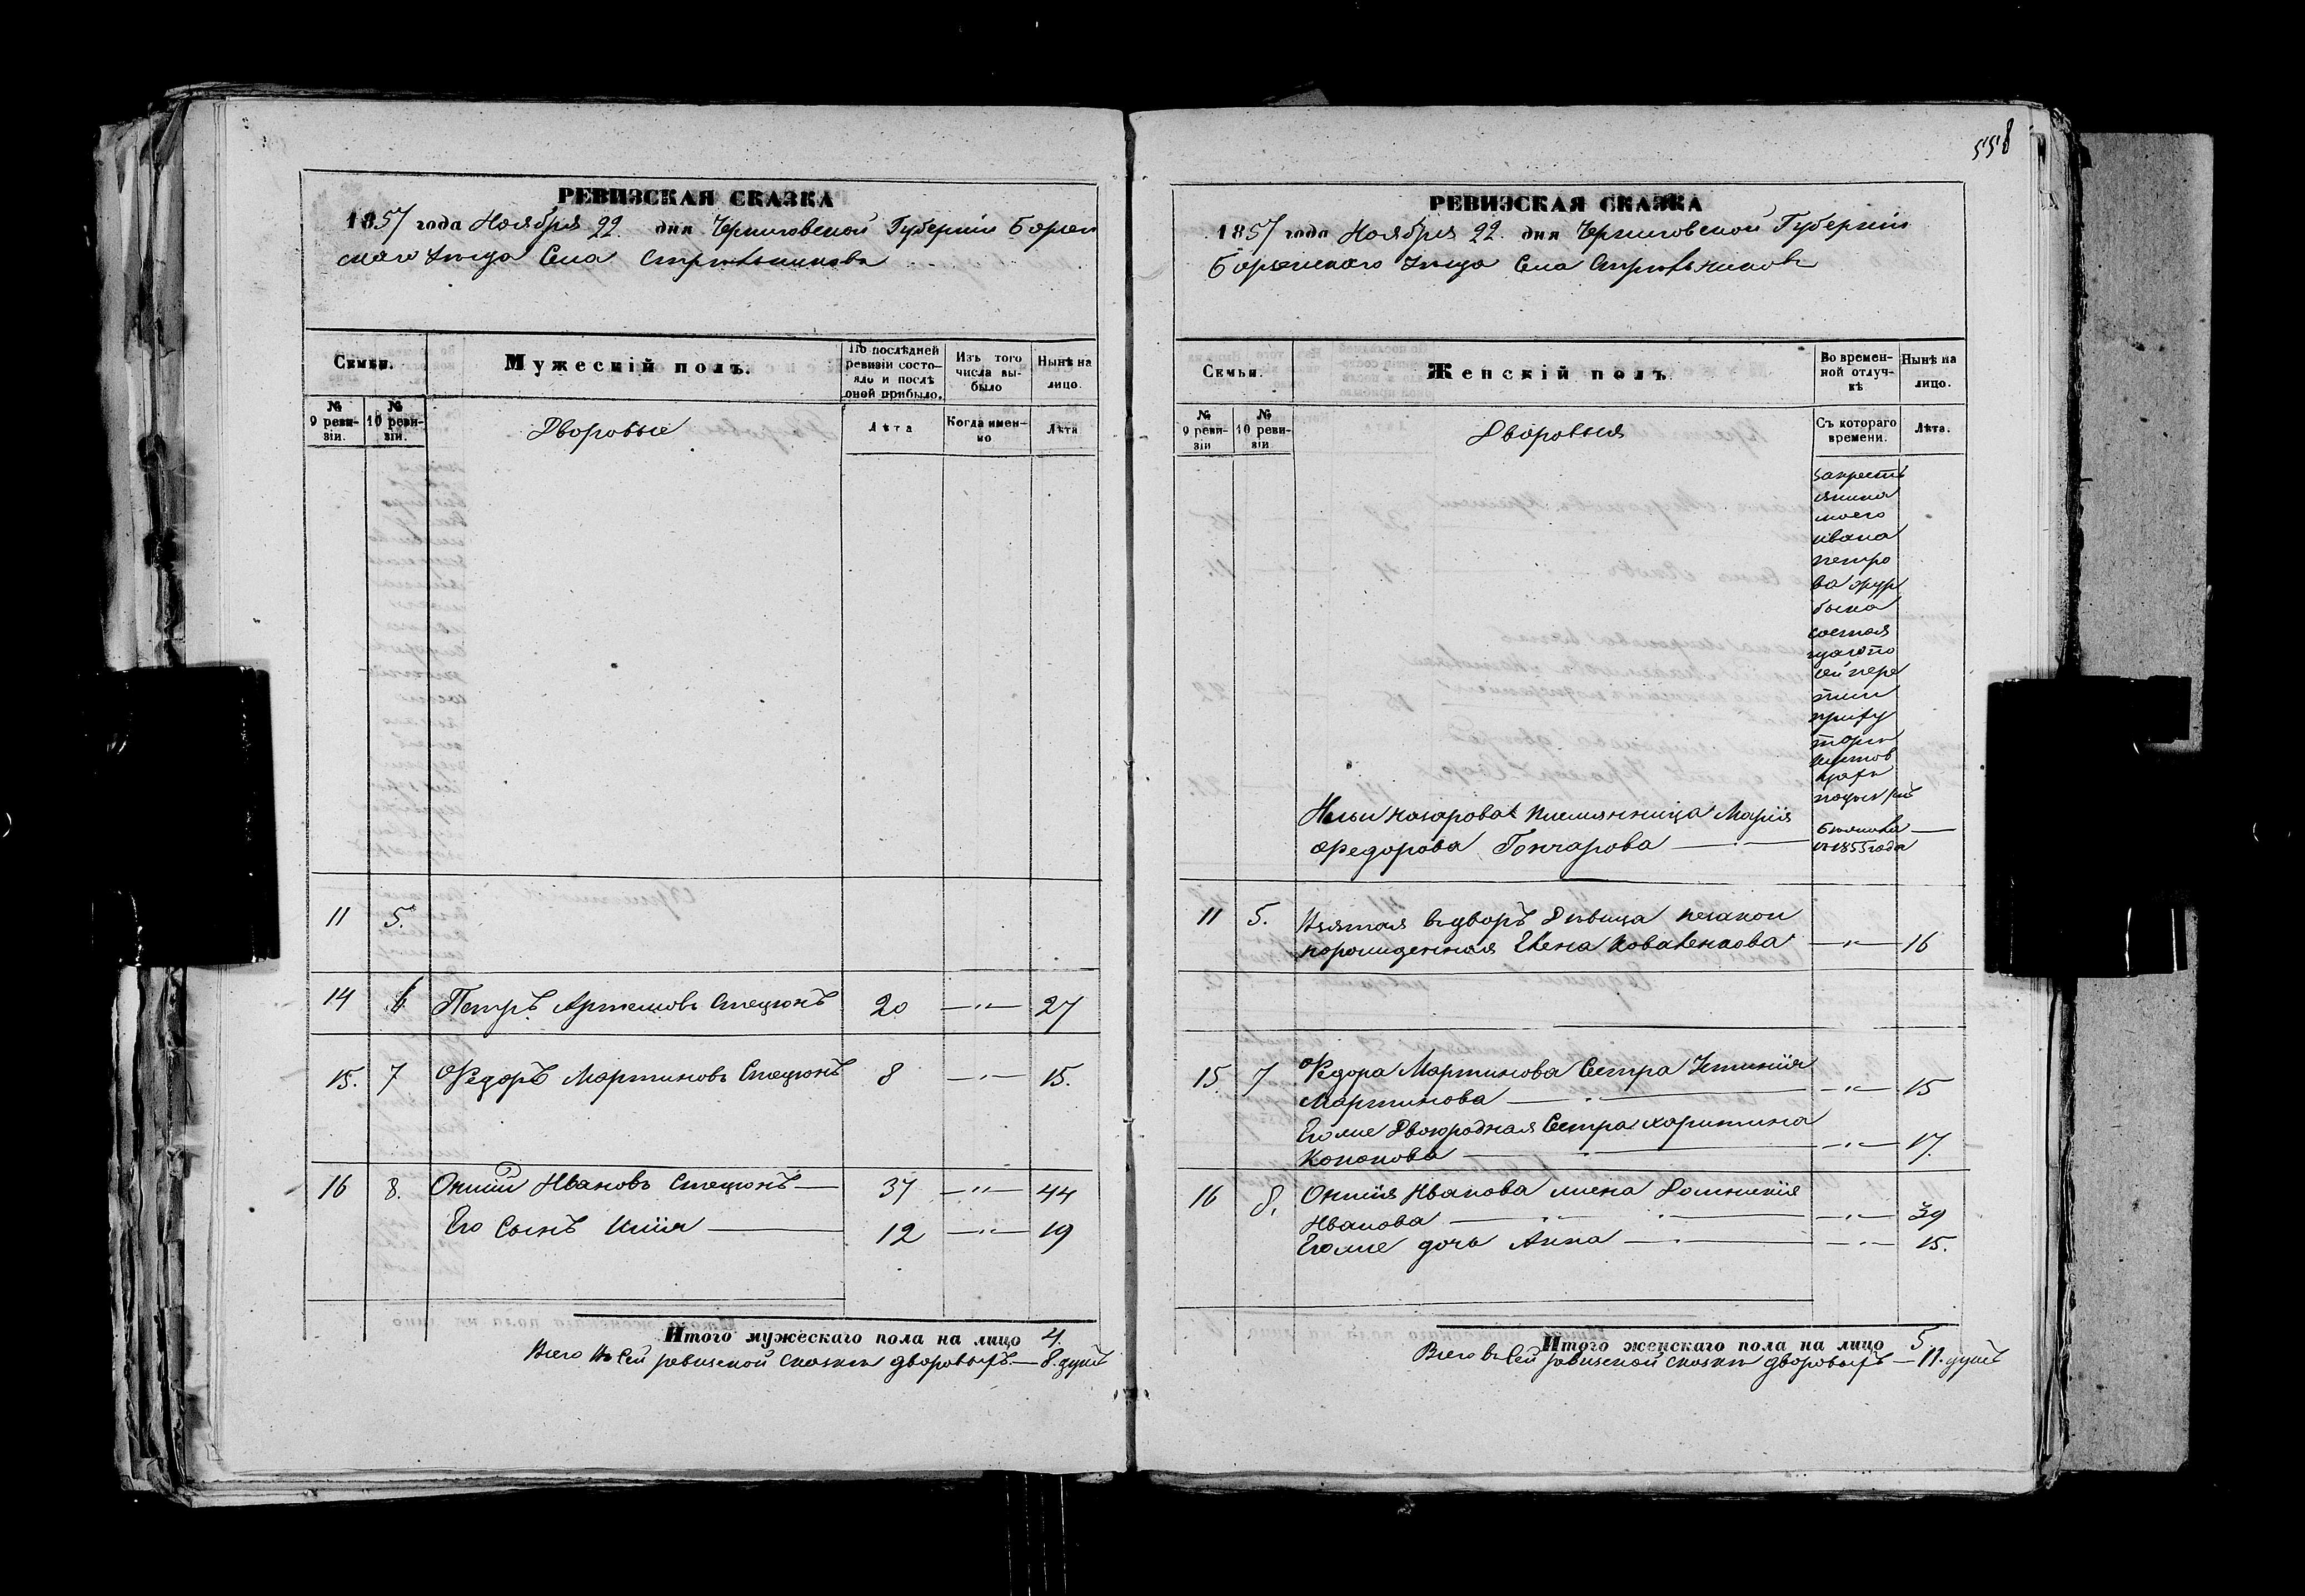 558
РЕВИЗСКАЯ СКАЗКА
1857 года Ноября 22. дня Черниговской Губерніи Борзен
скаго Уезда Села Стрельниковъ
Семьи.
Мужескій полъ.
По послѣдней ревизіи состояло и послѣ оной прибыло.
Изъ того числа выбыло
Нынѣ на лицо.
№ 9 ревизіи.
№ 10 ревизіи.
Дворовые
Лѣта
Когда именно
Лѣта
11 5.
14 6 Петръ Артемовъ Стецюнъ 20 —〃— 27
15. 7 Федоръ Мартиновъ Стецюнъ 8 —〃— 15.
16 8. Онисій Ивановъ Стецюнъ — 37 —〃— 44
Его Сынъ Илія — 12 —〃— 19
Итого мужескаго пола на лицо 4.
Всего въ Сей ревизской сказкѣ дворовыхъ — 8. душъ
РЕВИЗСКАЯ СКАЗКА
1857 года Ноября 22. дня Черниговской Губерніи
Борзенскаго Уезда Села Стрельниковъ
Семьи.
Женскій полъ
Во временной отлучкѣ
Нынѣ на лицо.
№ 9 ревизіи
№ 10 ревизіи
Дворовыя
Съ котораго времени.
Лѣта.
закресть
янина
моего
Ивана
Петро
ва
состоя
ней пере
Назарова племянница Марія
Федорова Гончарова —
1855 года
11 5. Взятая въ дворъ Дѣвица незакон
норожденная Елена Коваленкова —〃— 16
15. 7 Федора Мартинова Сестра Устинія
Мартинова — —〃— 15
Его же Двоюродная Сестра Харитина
Кононова — —〃— 17.
16 8. Онисія Иванова жена Домникія
Иванова — —〃— 39
Его же дочь Анна — —〃— 15.
Итого женскаго пола на лицо 5
Всего въ Сей ревизской сказкѣ дворовыхъ — 11. душъ